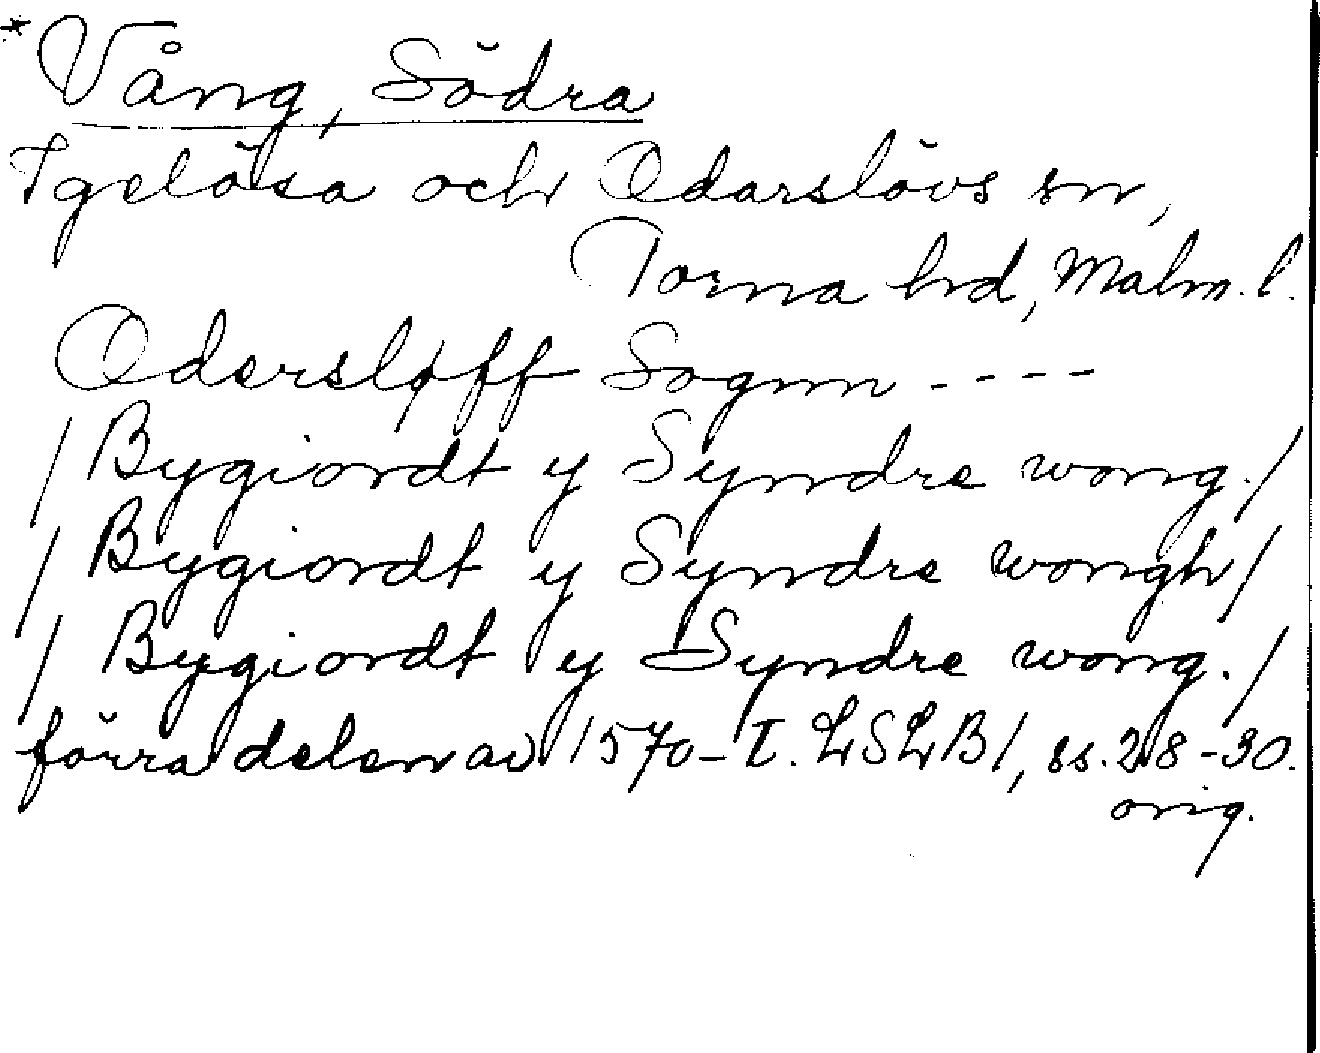 *Vång, Södra
Igelösa och Odarslövs sn,
Torna hrd, Malm. l.
Odersløff Sognn ----
/Bygiordt y Syndre wong./
/Bygiordt y Syndre wongh/
/Bygiordt y Syndre wong./
förra delen av 1570-t. LSLB1, ss. 28-30.
orig.